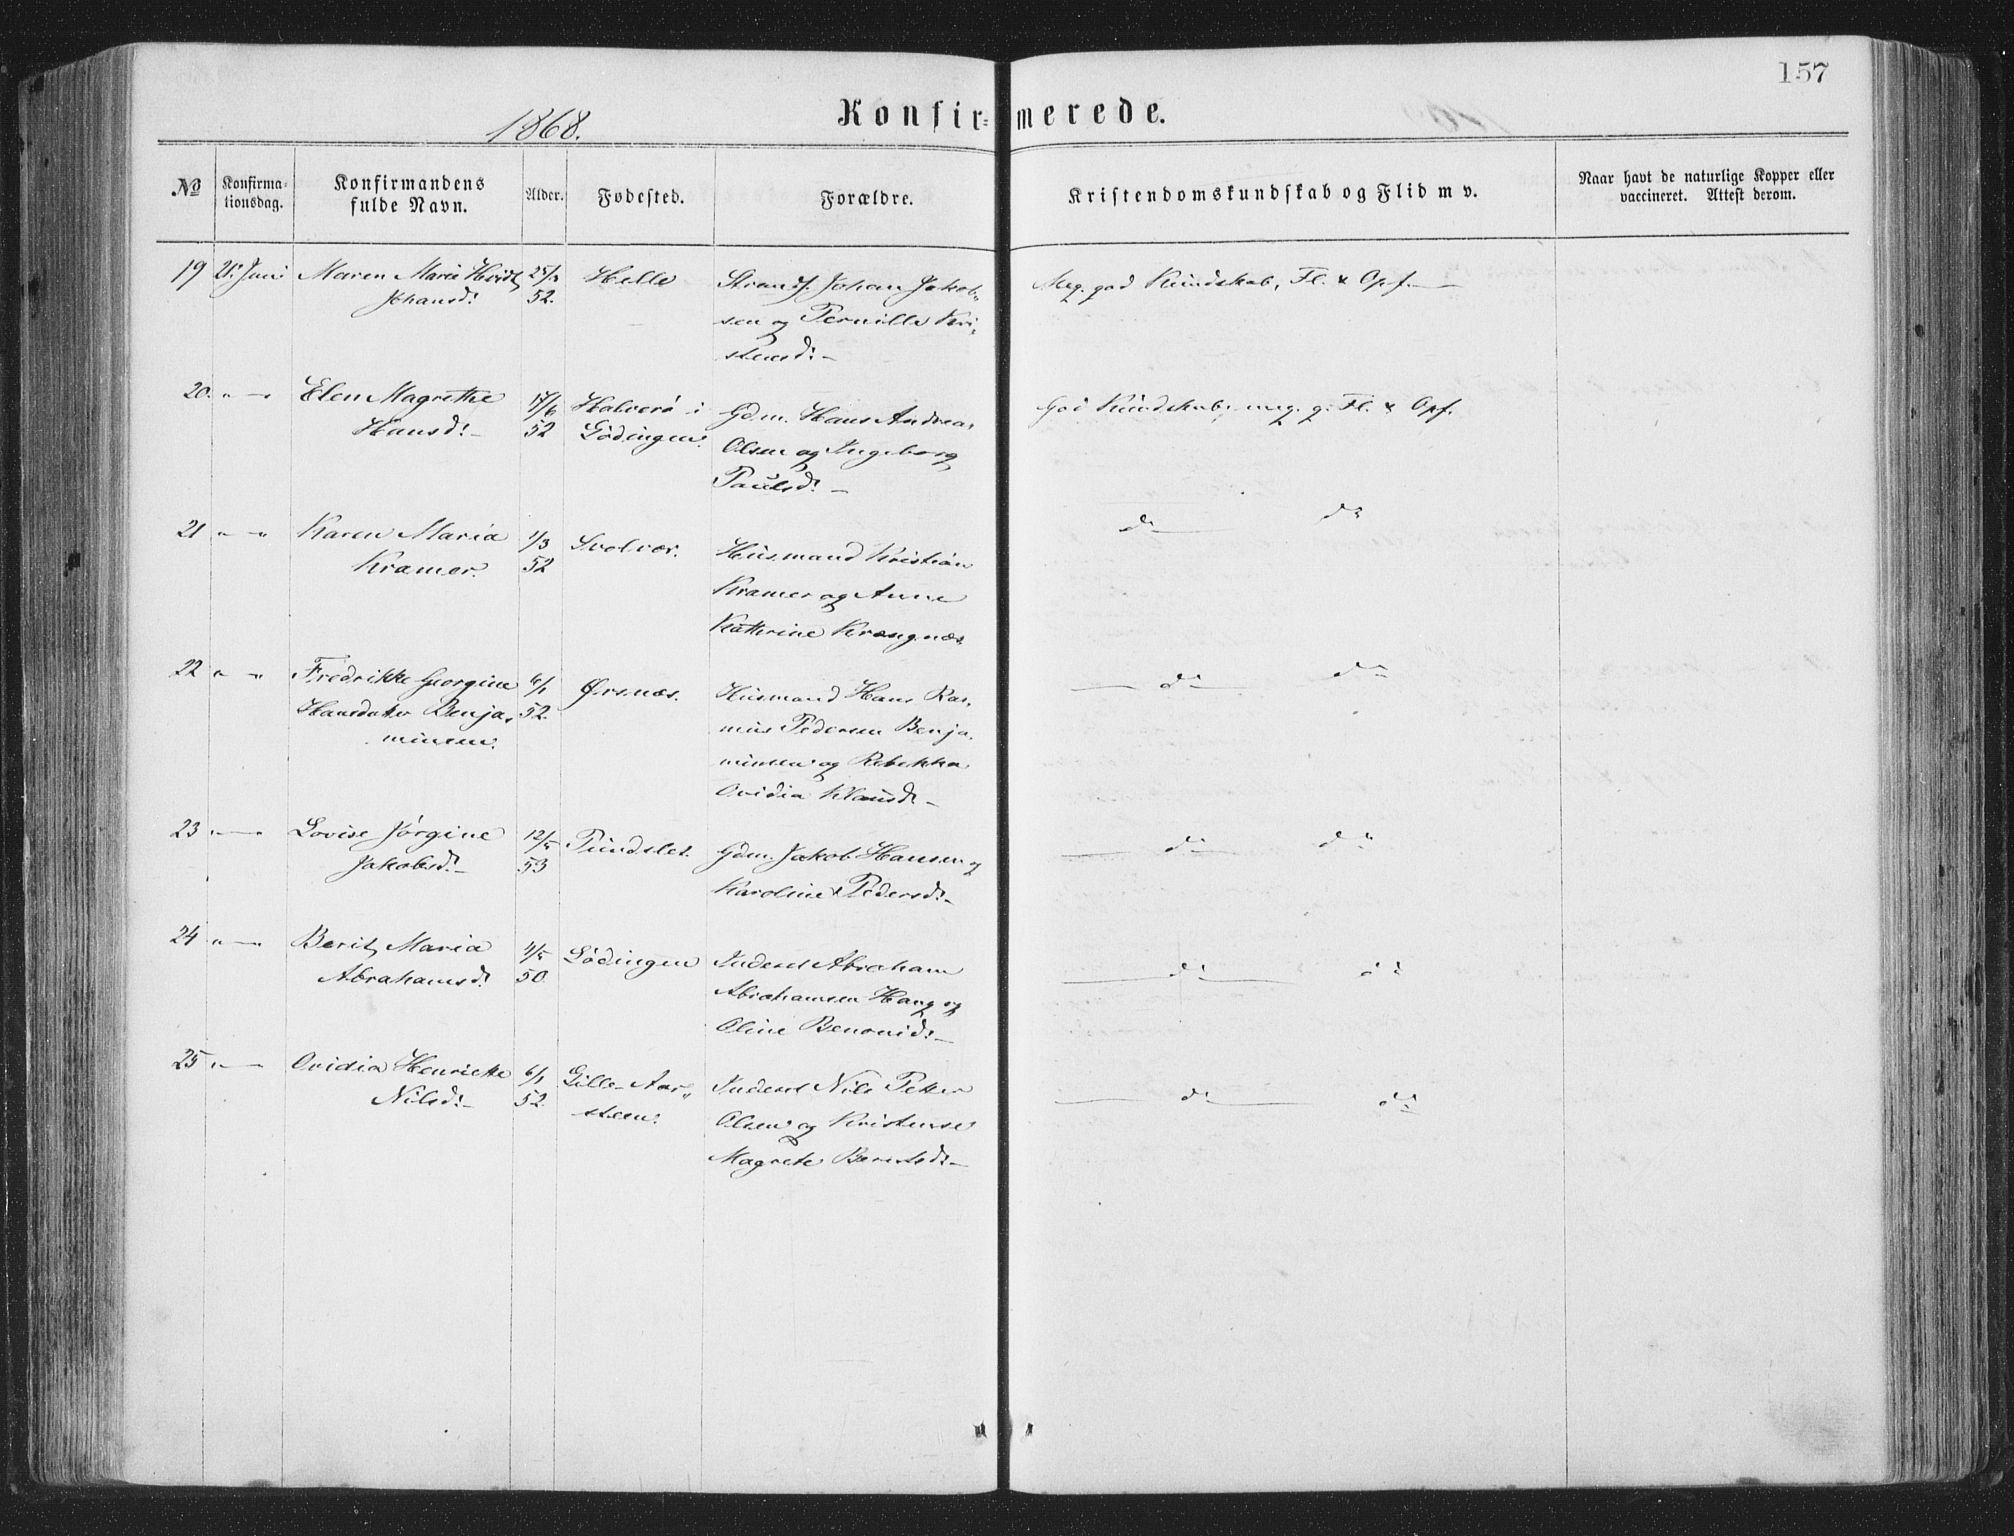 157
1868.
Konfir=merede.
No
Konfirma=
tionsdag.
Konfirmandens
fulde Navn.
Alder.
Fødested.
Forældre.
Kristendomskundskab og Flid m v.
Naar havt de naturlige Kopper eller
vaccineret. Attest derom.
19 21. Juni Maren Marie Johansd: 52. Helle
Strands. Johan Jakob-
sen og Pernille Kri-
stensd:
Meg. god Kundskab, Fl. & Opf.
20. " — " Elen Magrethe
Hansd: 17/6 52 Halverø i
Lødingen.
Gdm. Hans Andreas
Olsen og Ingeborg
Paulsd:
God Kundskab, meg. g. Fl. & Opf.
21 " — " Karen Maria
Kramer. 1/3 52 Svolvær.
Husmand Kristian
Kramer og Anne
Kathrine Krongnæs
do do
22 " — " Fredrikke Georgine
Hansdatter Benja-
minsen. 6/1 52. Ørsnæs.
Husmand Hans Ras-
mus Pedersen Benja-
minsen og Rebekka
Ovidia Klausd:
do do
23 " — " Lovise Jørgine
Jakobsd: 12/5 53 Pundslet.
Gdm. Jakob Hansen og
Karoline Pedersd:
do do
24 " — " Berit Maria
Abrahamsd: 4/5 50 Lødingen
Inderst Abraham
Abrahamsen Haug og
Oline Benonid:
do do
25 " — " Ovidia Henriette
Nilsd: 6/1 52. Lille Aar-
steen.
Inderst Nils Peter
Olsen og Kristense
Magrete Berntsd:
do do